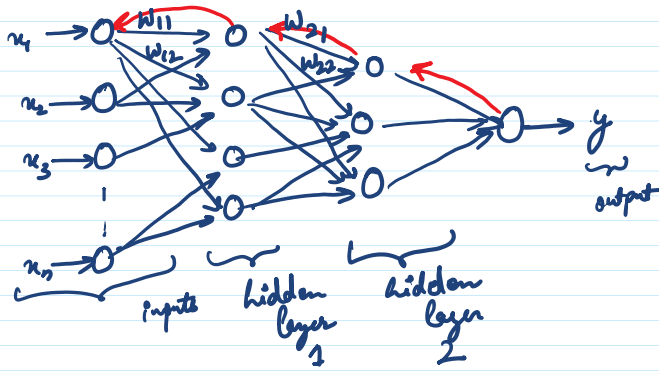 x1
x2
x3
xn
W11
W12
W21
W22
y
output
inputs
hidden
layer
1
hidden
layer
2